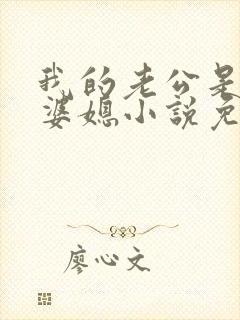 我的老公是
婆媳小說免
廖心文